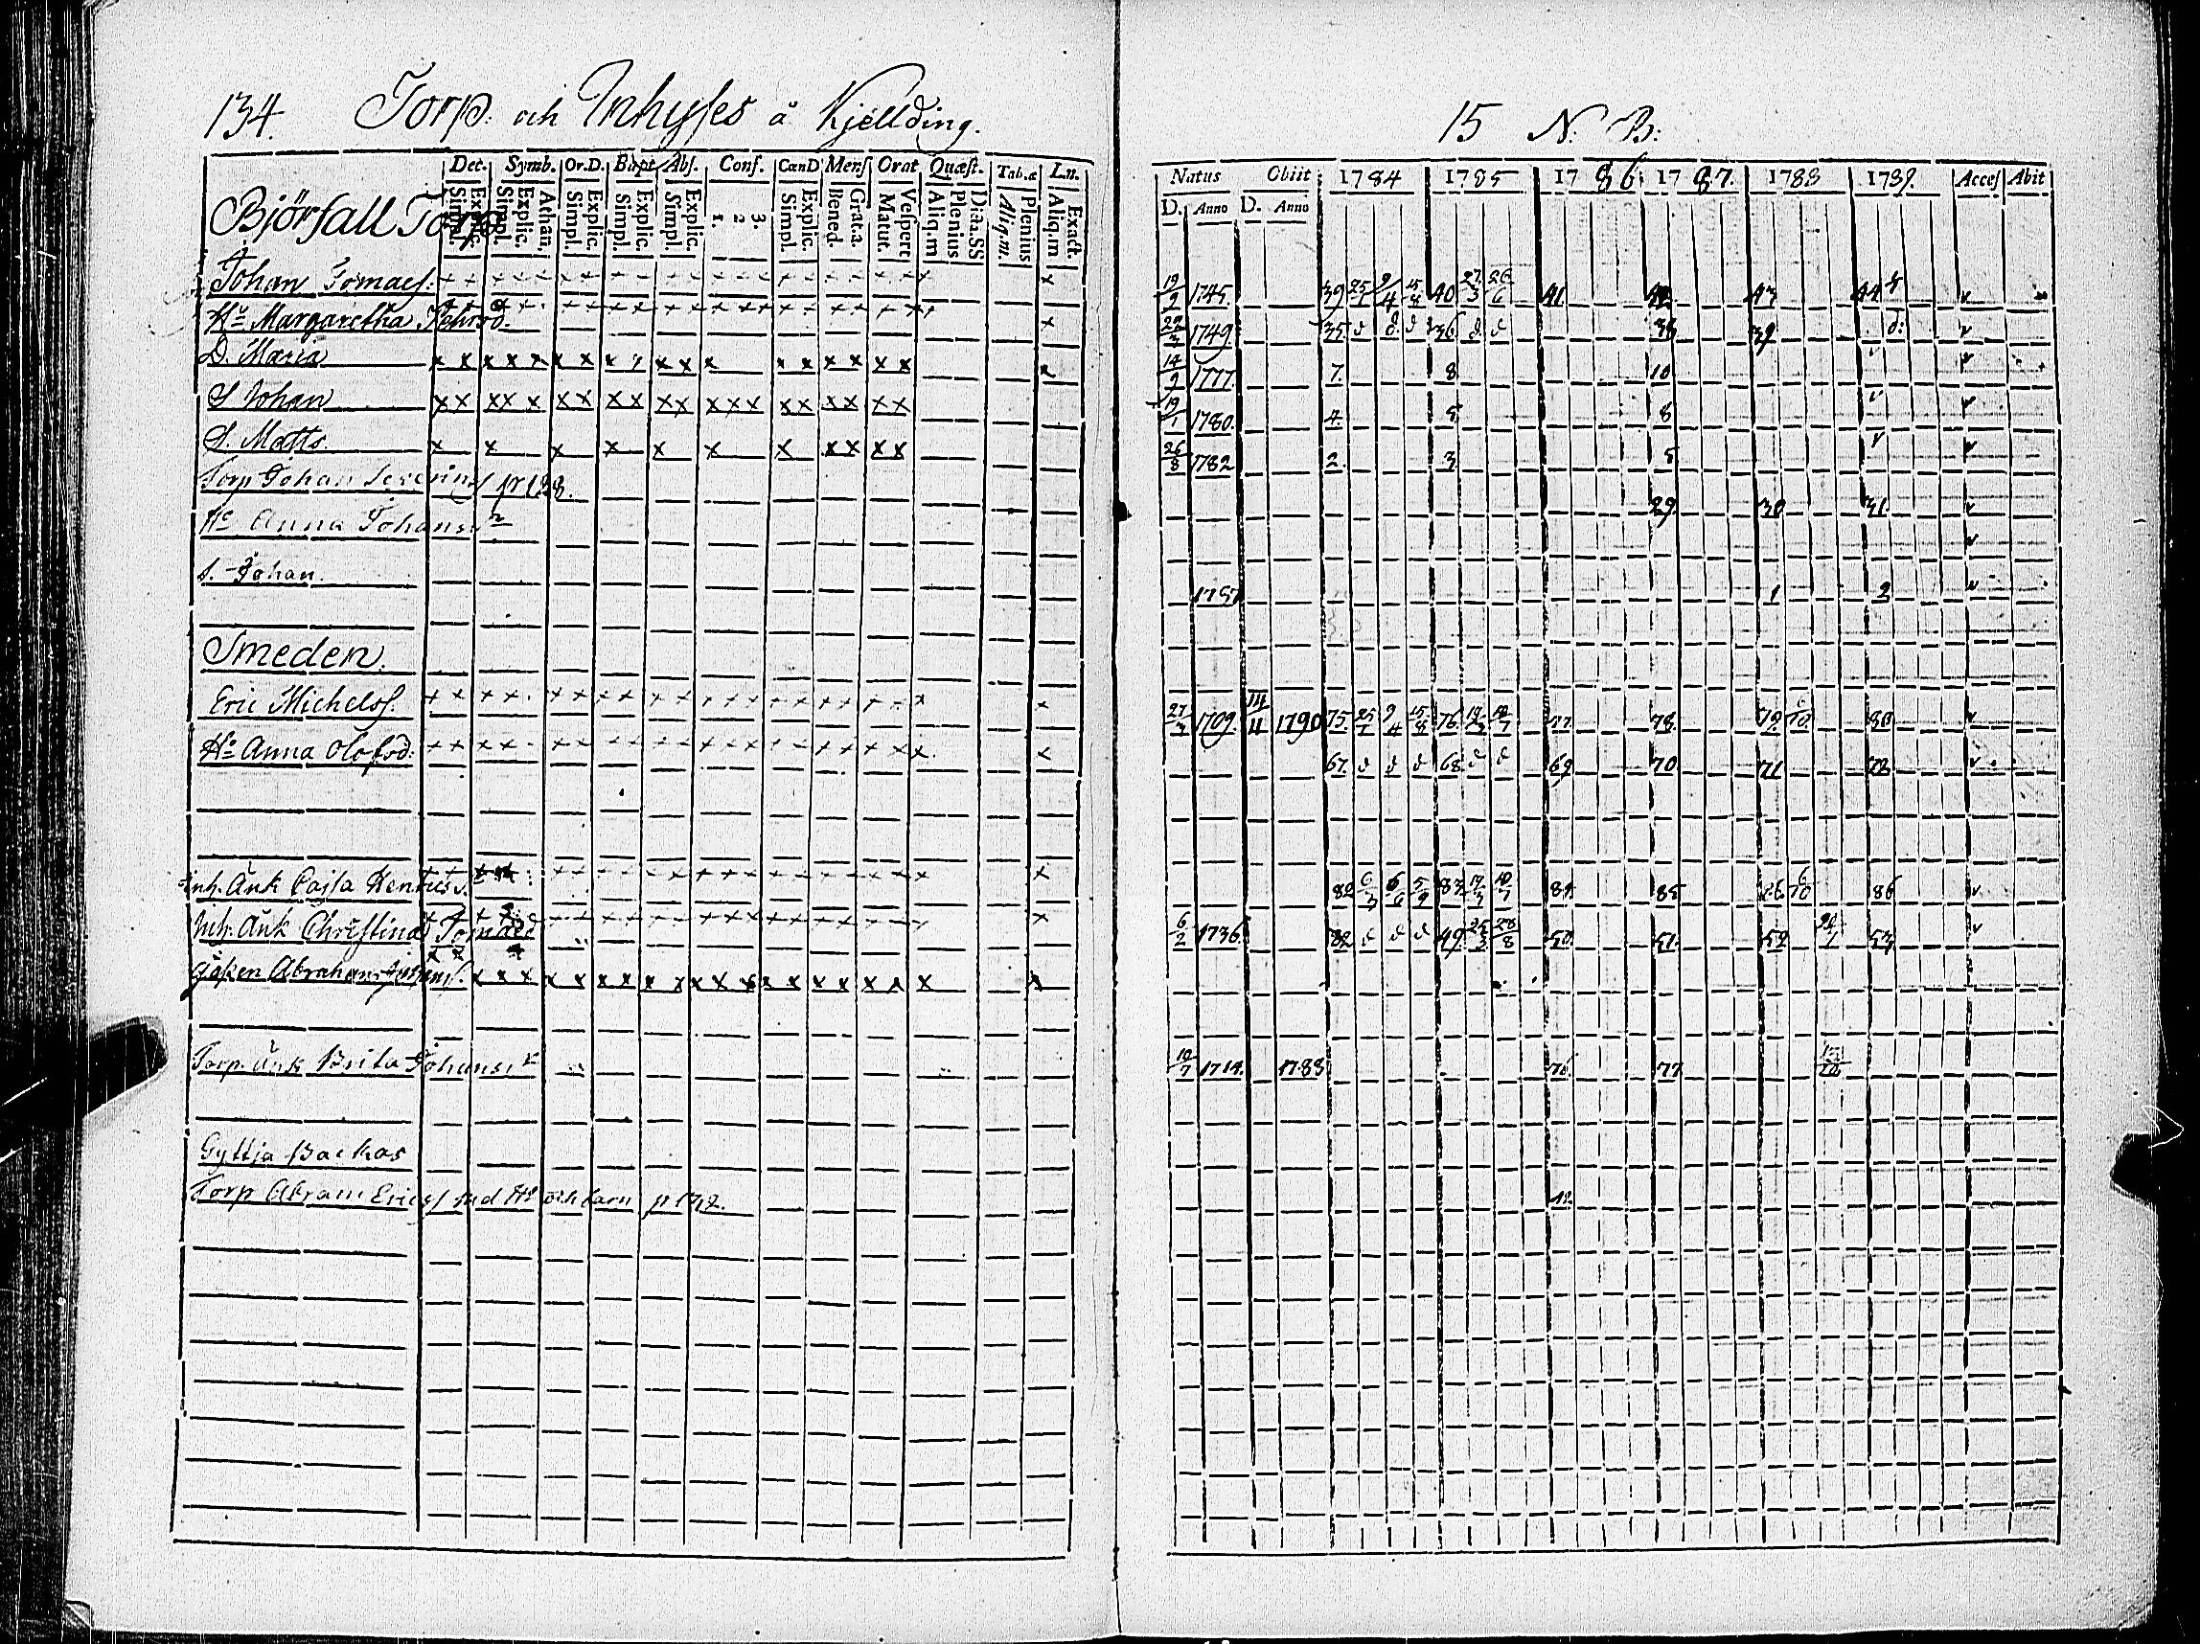 134. Torp och Inhyses å Kjellding.
15 N: B:
Det. Symb. Or.D. Bapt. Abs. Conf. CœnD Mens Orat Quæst. Tab.œ L.n.
Simpl. Explic. Simpl. Explic. Athan. Simpl. Explic. Simpl. Explic. Simpl. Explic. 1. 2 3. Simpl. Explic. Bened. Grat.a. Matut. Vespert Aliq.m Plenius Dia.SS Aliq.m. Plenius Aliq.m Exact.
Natus Obiit 1784 1785 1786 1787. 1788 1789. Acces Abit
D. Anno D. Anno
Björfall Torp
Johan Tomæs. 19/9 1745. 39 25/1 9/4 15/8 40 27/3 26/6 41 42 43 44
Hu Margaretha 1749. 35 d d d 36 d d 38 39 d:
D. Maria 14/9 1777. 7. 8 10
S Johan 19/1 1780. 4. 5 8
S. Matts. 26/8 1782 2. 3 5
Torp Johan 29. 30 31.
Hu Anna Johansd
S. Johan. 1787 1 2
Smeden.
Eric Michelss. 27/3 1709. 1790 75. 25/1 9/4 15/8 76 77. 78. 79. 6/10 80
Hu Anna Olofsd: 67. d d d 68 d d 69 70 71 72
Inh. Änk Cajsa 82 83 84. 85 86
Inh. Änk Christina Tomæd 6/2 1736. d d d 49 50. 51. 52 53
Abraham
Torp. Änk Brita Johansd 10/7 1788 76. 77
Gyttja Backas
Torp Abram Ericss med Hu och barn p 42